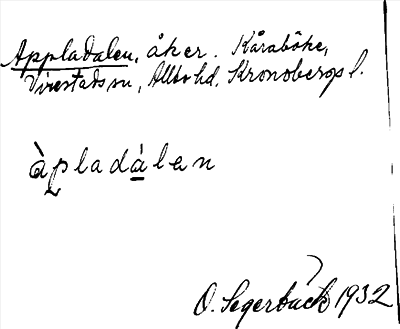 Appladalen, åker. Kåraböke,
Virestads sn, Allbo hd. Kronobergs l.
àpladàlen
O. Segerbäck 1932